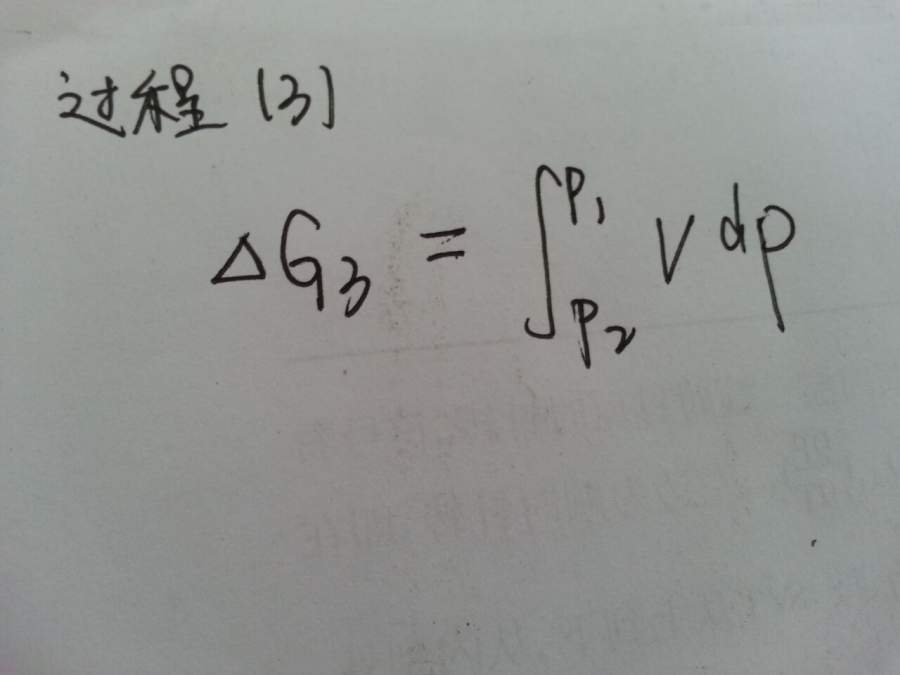 过程 (3)
ΔG₃ = ∫_{P₂}^{P₁} V dp